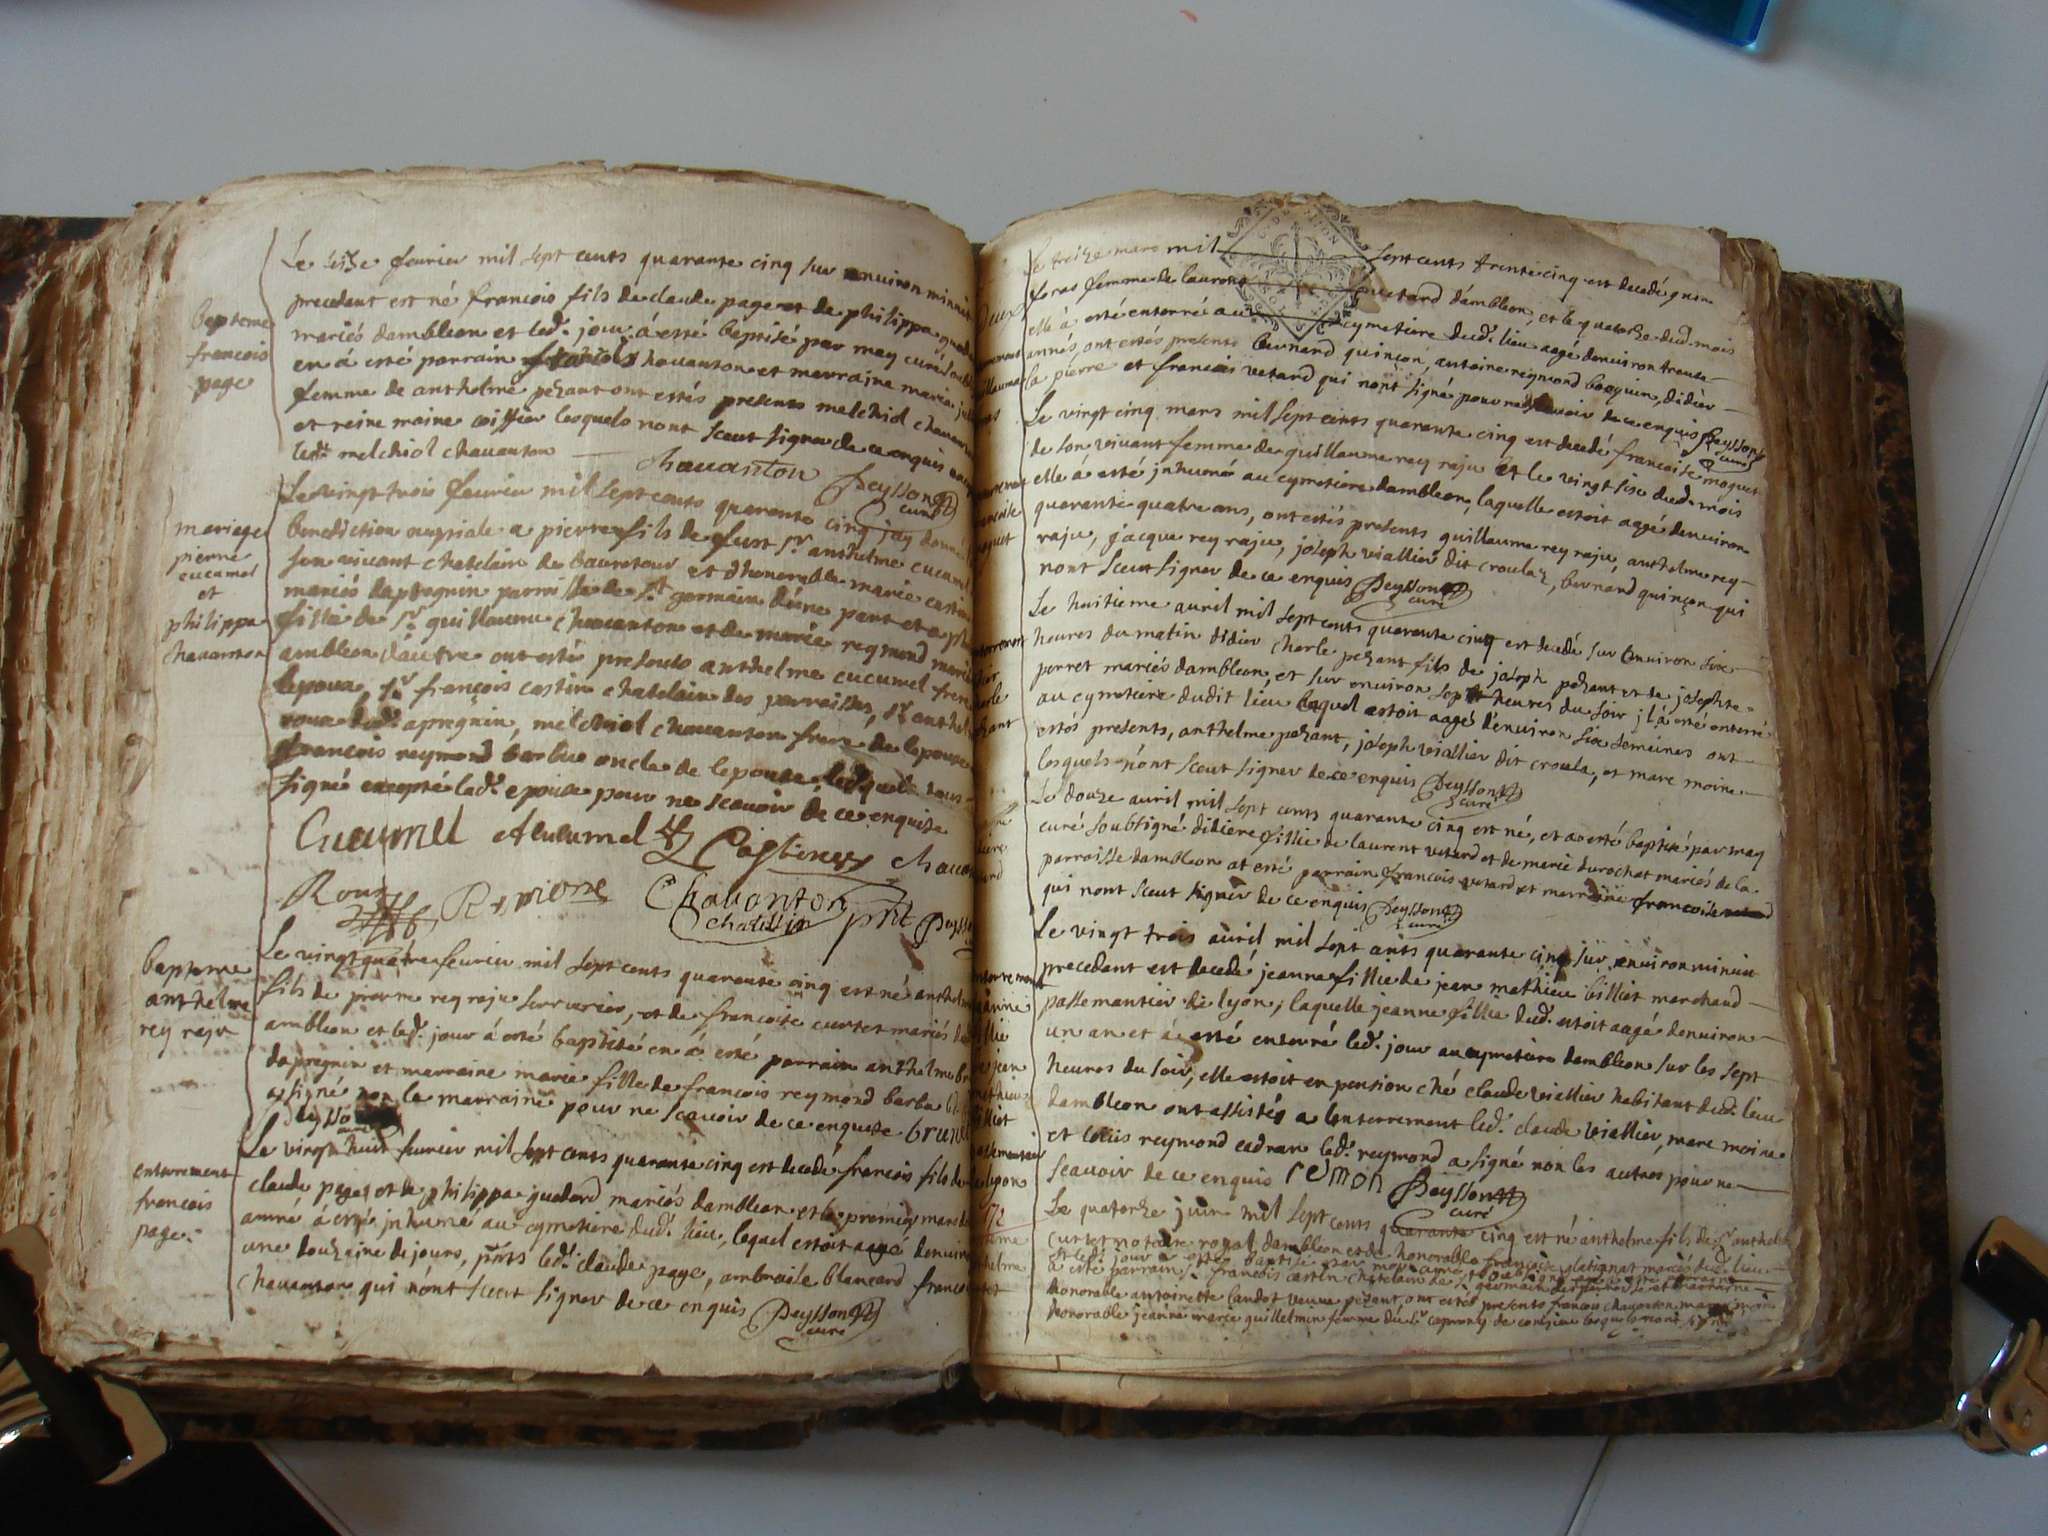 bapteme
francois
page
Le seize feurier mil sept cents quarante cinq sur enuiron minuit
precedant est né francois fils de claude page et de philippa
mariés dambleon et led. jour á esté baptisé par moy curé
en á esté parrain francois chauanton et marraine marie
femme de anthelme pezant ont estés presents melchiol
et reine moine lesquels nont sceut signer de ce enquis
led. melchiol chauanton
chauanton Peysson
curé
mariage
pierre
cucumel
et
philippa
chauanton
Le vingt trois feurier mil sept cents quarante cinq jay donné
benediction nupsiale a pierre fils de feu sr. anthelme cucumel
son viuant chatelain de et dhonorable marie
mariés dapregnin parroisse de st. germain dune part et a
fillie de sr. guillaume chauanton et de marie reymond mariés
ambleon dautre ont esté presents anthelme cucumel frere
lepoux, sr. françois castin chatelain des parroisses, sr. anthelme
roux dud. apregnin, melchiol chauanton frere de lepouse
françois reymond barbu oncle de lepouse, lesquels tous
signé excepté lad. epouse pour ne scauoir de ce enquise
Cucumel A Cucumel Castin
Roux Chauanton
prit
bapteme
anthelme
rey raju
Le vingt quatre feurier mil sept cents quarante cinq est né anthelme
fils de pierre rey raju serrurier, et de francoise curtet mariés
ambleon et led. jour á esté baptisé en á esté parrain anthelme
dapregnin et marraine marie fille de francois reymond barbu
signé non la marraine pour ne scauoir de ce enquise brunet
Peysson
enterrement
francois
page
Le vingt huit feurier mil sept cents quarante cinq est decedé francois fils de
claude page et de philippa mariés dambleon et le premier mars
á esté jnhumé au cymetiere dud. lieu, lequel estoit aagé denuiron
une douzaine de jours, prnts led. claude page, ambroise blancard
chauanton qui nont sceut signer de ce enquis Peysson
curé
Le treize mars mil sept cents trente cinq est decedé
femme de laurent vetard dambleon, et le quatorze dud. mois
elle á esté enterré au cymetiere dud. lieu aagé denuiron trente
années, ont estés presents bernard quinçon, antoine reymond, didier
la pierre et francois vetard qui nont signé pour ne scauoir de ce enquis Peysson
curé
Le vingt cinq mars mil sept cents quarante cinq est decedé francoise moquet
de son viuant femme de guillaume rey raju et le vingt six dud. mois
elle á esté jnhumé au cymetiere dambleon, laquelle estoit aagé denuiron
quarante quatre ans, ont estés presents guillaume rey raju, anthelme rey
raju, jacque rey raju, joseph viallier dit croulaz, bernard quinçon qui
nont sceut signer de ce enquis Peysson
curé
Le huitieme auril mil sept cents quarante cinq est decedé sur enuiron six
heures du matin didier charle pezant fils de joseph pezant et de josephte
perret mariés dambleon, et sur enuiron sept heures du soir jl á esté enterré
au cymetiere dudit lieu lequel estoit aagé denuiron six semaines ont
estés presents, anthelme pezant, joseph viallier dit croula, et marc moine
lesquels nont sceut signer de ce enquis Peysson
curé
Le douze auril mil sept cents quarante cinq est né, et a esté baptisé par moy
curé soubsigné didiere fillie de laurent vetard et de marie durochat mariés de la
parroisse dambleon at esté parrain francois vetard et marraine francoise
qui nont sceut signer de ce enquis Peysson
curé
Le vingt trois auril mil sept cents quarante cinq sur enuiron minuit
precedant est decedé jeanne fillie de jean mathieu billiot marchand
passemantier de lyon, laquelle jeanne fillie dud. estoit aagé denuiron
un an et á esté enterré led. jour au cymetiere dambleon sur les sept
heures du soir, elle estoit en pension ché claude viallier habitant dud. lieu
dambleon ont assistés a lenterrement led. claude viallier, marc moine
et louis reymond cadran led. reymond a signé non les autres pour ne
scauoir de ce enquis remon Peysson
curé
Le quatorze juin mil sept cents quarante cinq est né anthelme fils de sr. anthelme
curtet notaire royal dambleon et de honorable françoise platignat mariés dud. lieu
et led. jour a esté baptisé par moy curé
a esté parrain sr. francois castin chatelain de st.
honorable antoinette landot veuve pezant, ont estés presents francois chauanton marc moine
honorable jeanne marie guillelmin femme du sr. de